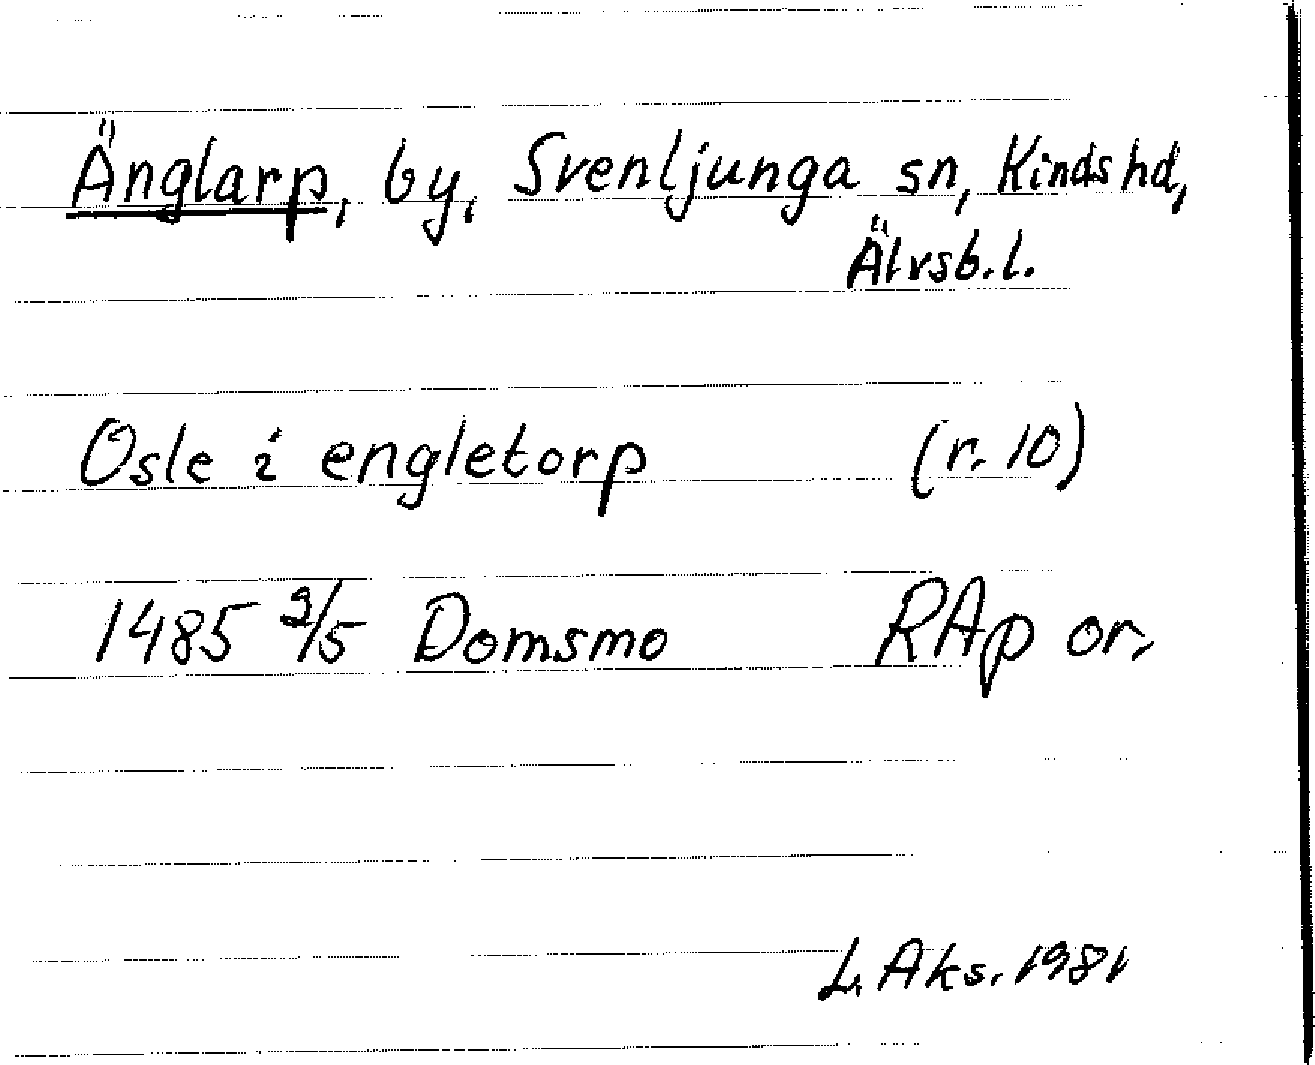 Änglarp, by, Svenljunga sn, Kinds hd,
Älvsb. l.
Osle i engletorp (r. 10)
1485 2/5 Domsmo RAp or.
L. Aks. 1981